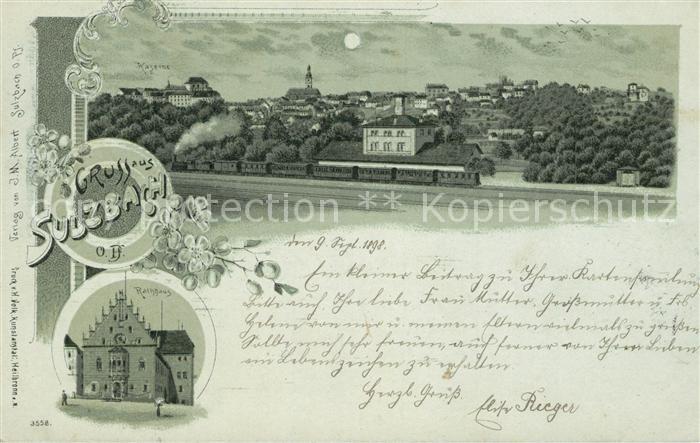 Kaserne
GRUSS aus
SULZBACH
O. Pf.
Rathhaus
Verlag von J. M. Albert Sulzbach O. Pf.
Druck v. H. Folk, Kunstanstalt, Heilbronn a. N.
3558.
den 9. Sept. 1898.
Ein kleiner Beitrag zu Ihrer Kartensammlung
Bitte auch Ihre liebe Frau Mutter, Großmutter u. Frl.
Helene von mir u. meinen Eltern vielmals zu grüßen
Sollte mich sehr freuen, auch ferner von Ihnen Lieben
ein Lebenzeichen zu erhalten.
Herzl. Gruß.
Elise Rieger
protection ** Kopierschutz